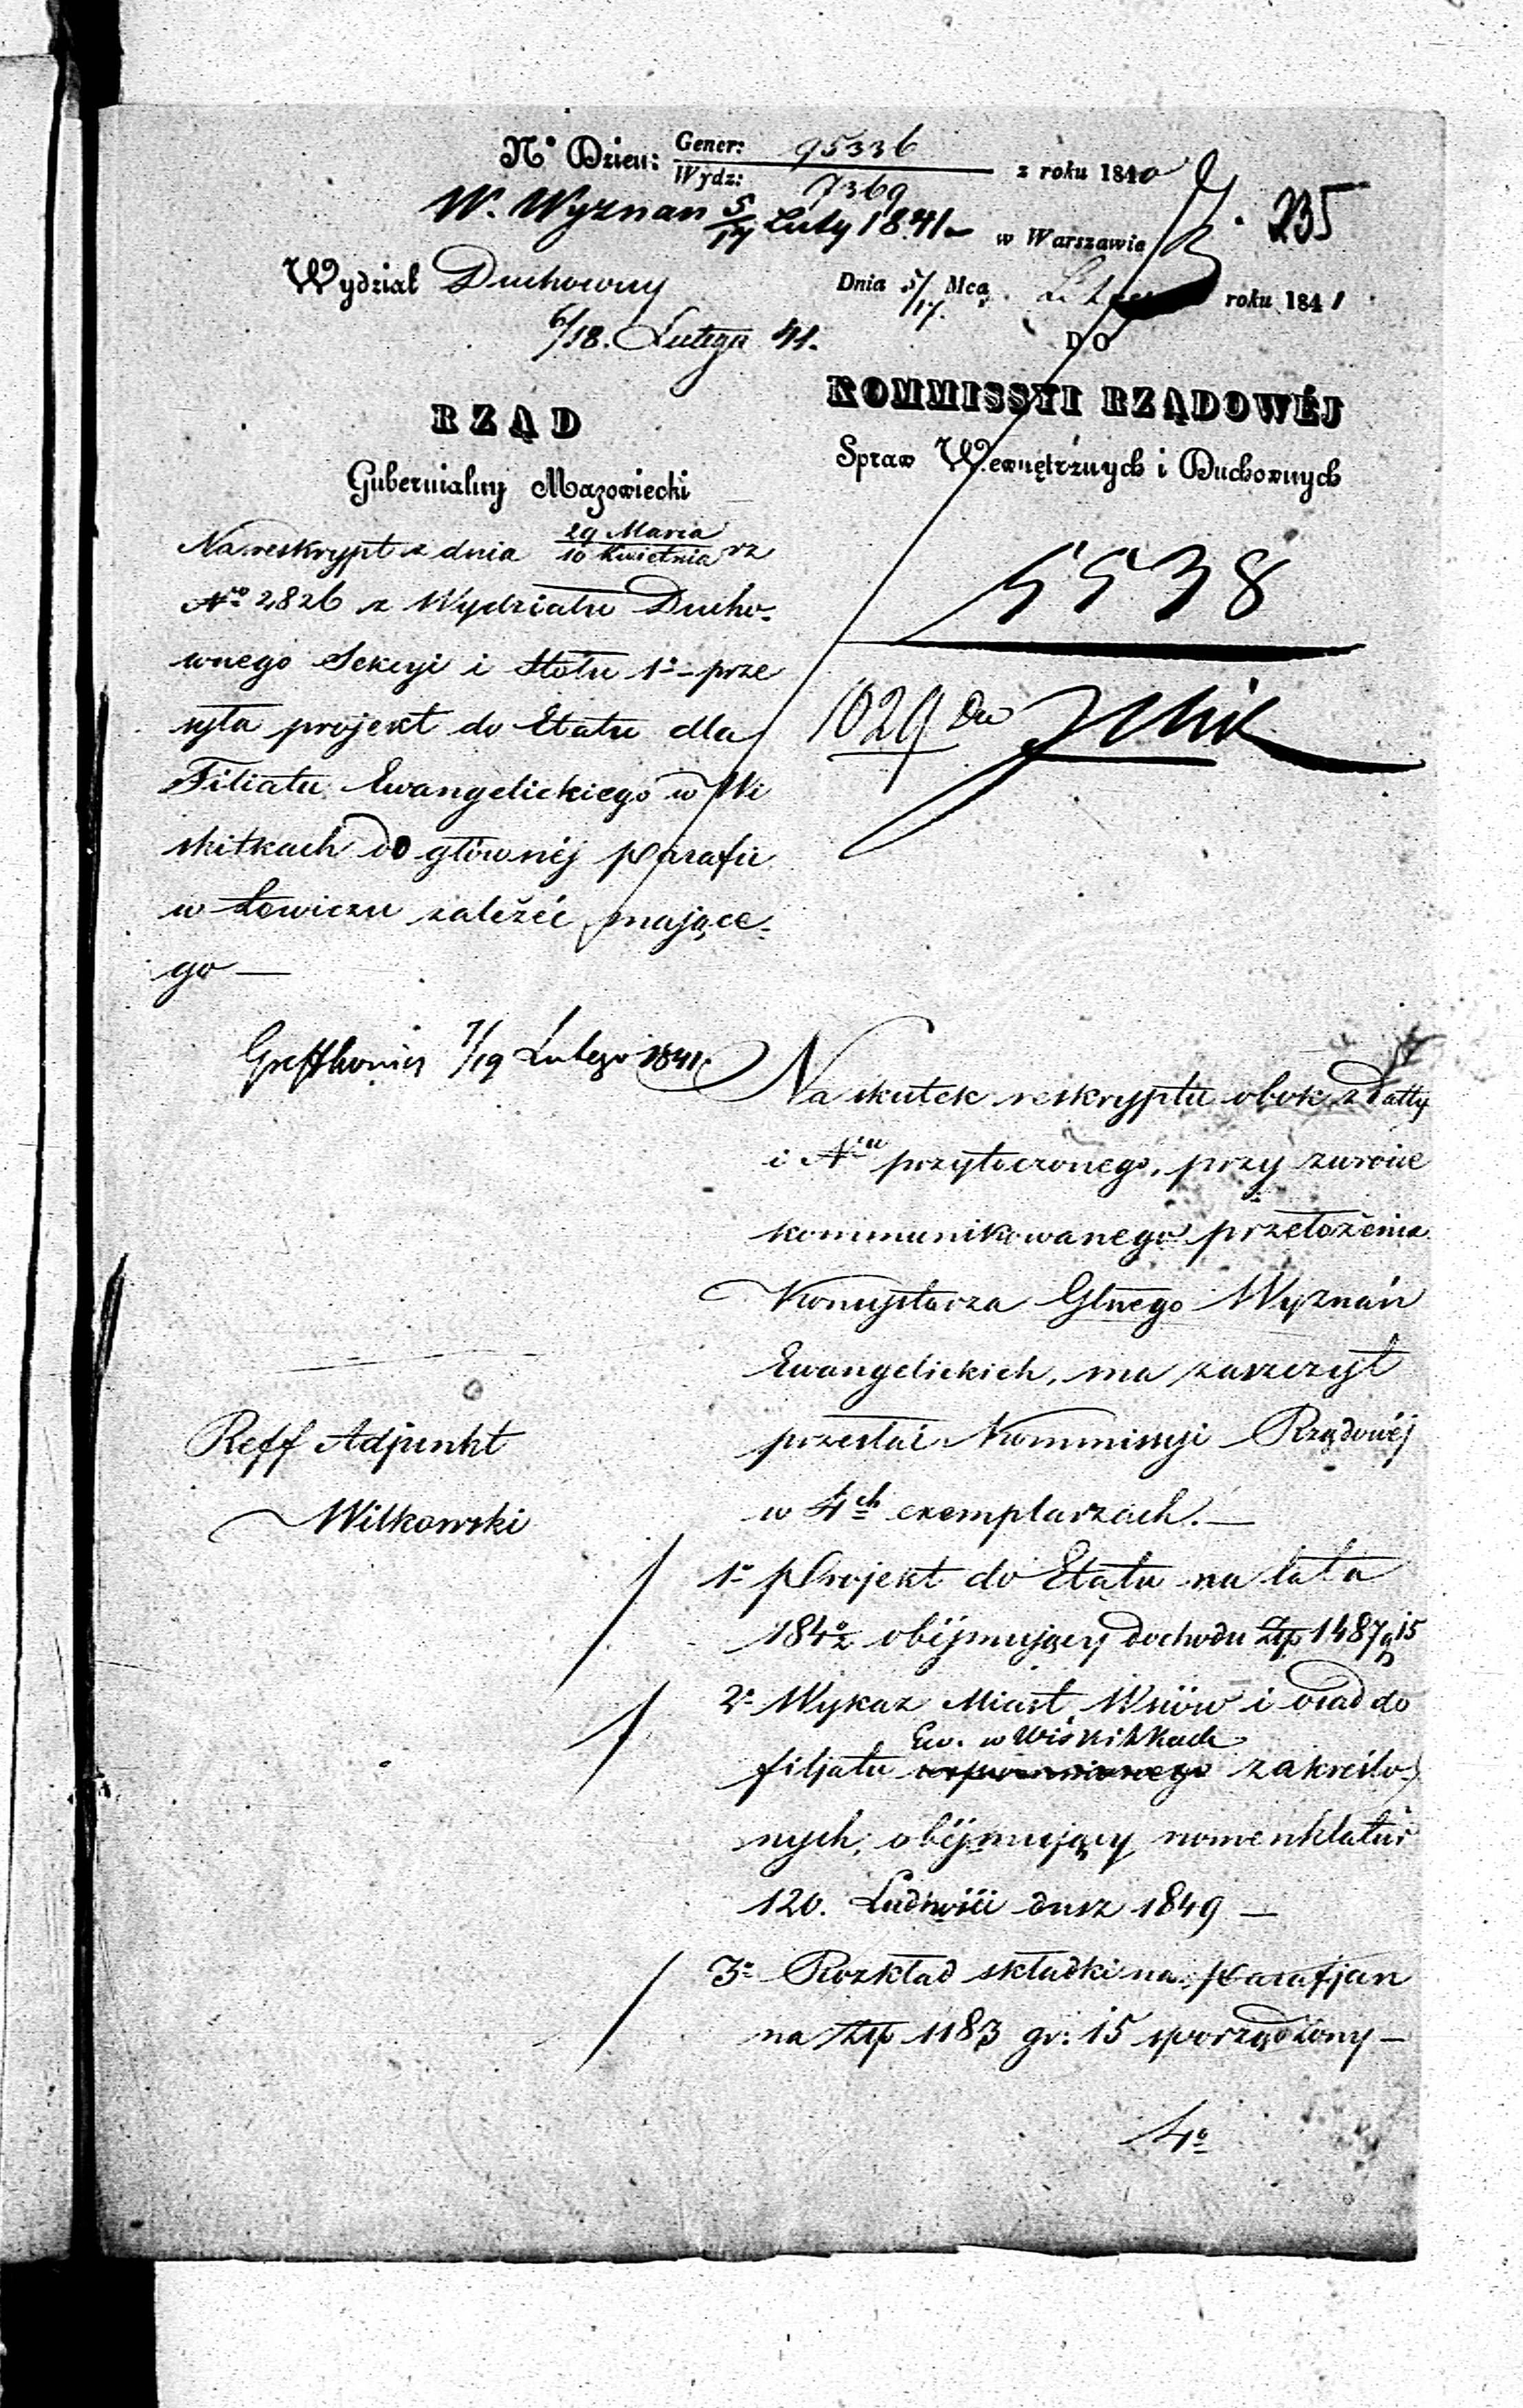 Nº Dzien: Gener: 95336
Wydz: 7369
z roku 1840
235
W. Wyznań 5/17 Luty 1841
w Warszawie
Wydział Duchowny
Dnia 5/17. Mca roku 1841
6/18. Lutego 41.
DO
RZĄD
KOMMISSYI RZĄDOWÉJ
Gubernialny Mazowiecki
Spraw Wewnętrznych i Duchownych
5538
1029
Na reskrypt z dnia 29 Marca / 10 Kwietnia rz
Nro 2826 z Wydziału Ducho-
wnego Sekcyi i Stołu 1º prze
syła projekt do Etatu dla
Filiału Ewangelickiego w Wi
skitkach do głównéj parafii
w Łowiczu zależéć mające-
go —
7/19 Lutego 1841
Na skutek reskryptu obok z datty
i Nru przytoczonego, przy zwrocie
kommunikowanego przełożenia
Konsystorza Glnego Wyznań
Ewangelickich, ma zaszczyt
przesłać Kommissyi Rządowéj
w 4ch exemplarzach. —
Reff Adjunkt
Wilkowski
1º projekt do Etatu na lata
184 0/2 obéjmujący dochodu Złp 1487 g 15
2º Wykaz Miast, Wsiów i osad do
Ew. w Wiskitkach
filjału zakreślo-
nych, obéjmujący nomenklatur
120. Ludności dusz 1849 —
3º Rozkład składki na parafjan
na Złp 1183 gr: 15 sporządzony —
4º